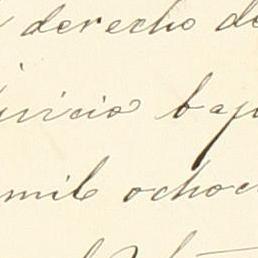 derecho de
juicio bajo
mil ochoc